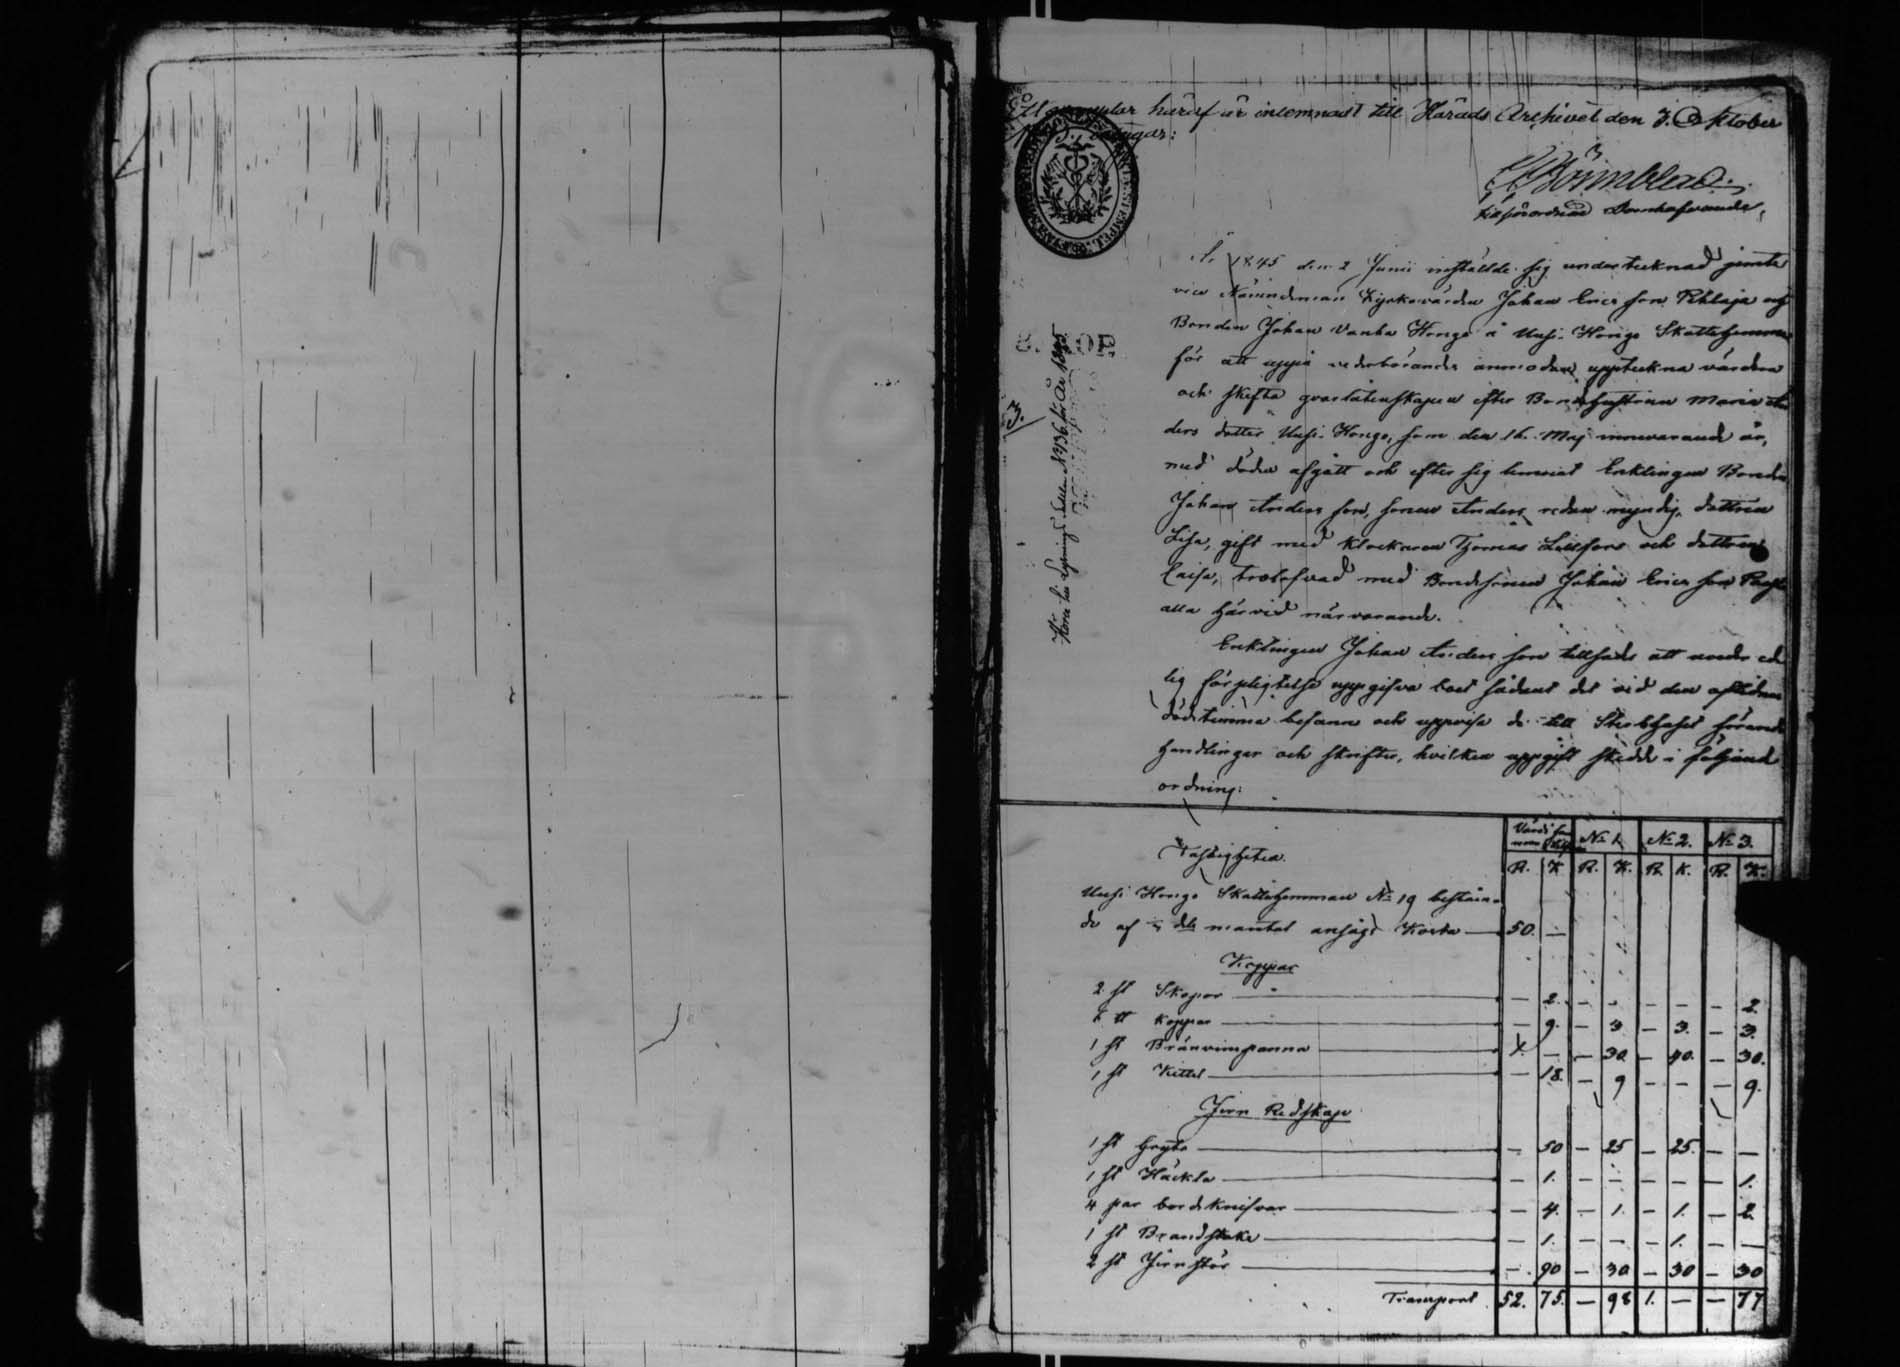 Ett exemplar häraf är inlemnadt till Härads Archivet den 3. Oktober
betygar:
Brönnblad
tillförordnad Domhafvande
År 1845 den 2 Junii inställde sig undertecknad jemte
vice Nämndeman Kyrkovärden Johan Ericsson Pihlaja och
Bonden Johan Vanha Hongo å Uusi Hongo Skattehemman
för att uppå vederbörandes anmodan uppteckna värdera
och skifta qvarlåtenskapen efter Bondehustrun Maria An
ders dotter Uusi Hongo, som den 16 Maj innevarande år,
med döden afgått och efter sig lemnat Enklingen Bonden
Johan Anders son, sonen Anders redan myndig, dottren
Lisa, gift med Klockaren Thomas Lillfors och dottren
Caisa, trolofvad med Bondesonen Johan Erics son
alla härvid närvarande.
Enklingen Johan Anders son tillsades att under ed
lig förpligtelse uppgifva boet sådant det vid den aflidnas
dödstimma befann och uppvisa de till Sterbhuset hörande
handlingar och skrifter, hvilken uppgift skedde i följande
ordning:
Höra till Lysnings N 136 för År 1845
3.
Fastigheten. N: 1. N: 2. N: 3.
R. K. R. K. R. K. R. K.
Uusi Hongo Skattehemman N: 19 bestående
af dels mantal ansågs Kosta — 50. —
Koppar
2 st Skopor — — 2. — — — — — 2.
koppar — — 9. — 3. — 3. — 3.
1 st Bränvinspanna — 1. — — 30. — 40. — 30.
1 st Kittel — — 18. — 9 — — — 9.
Jern Redskap
1 st Gryta — — 50 — 25 — 25. — —
1 st Häckla — — 1. — — — — — 1.
4 par bordsknifvar — — 4. — 1. — 1. — 2.
1 st Brandstake — — 1. — — — 1. — —
2 st Jernstör — — 90 — 30 — 30 — 30
Transport 52. 75. — 98 1. — — 77